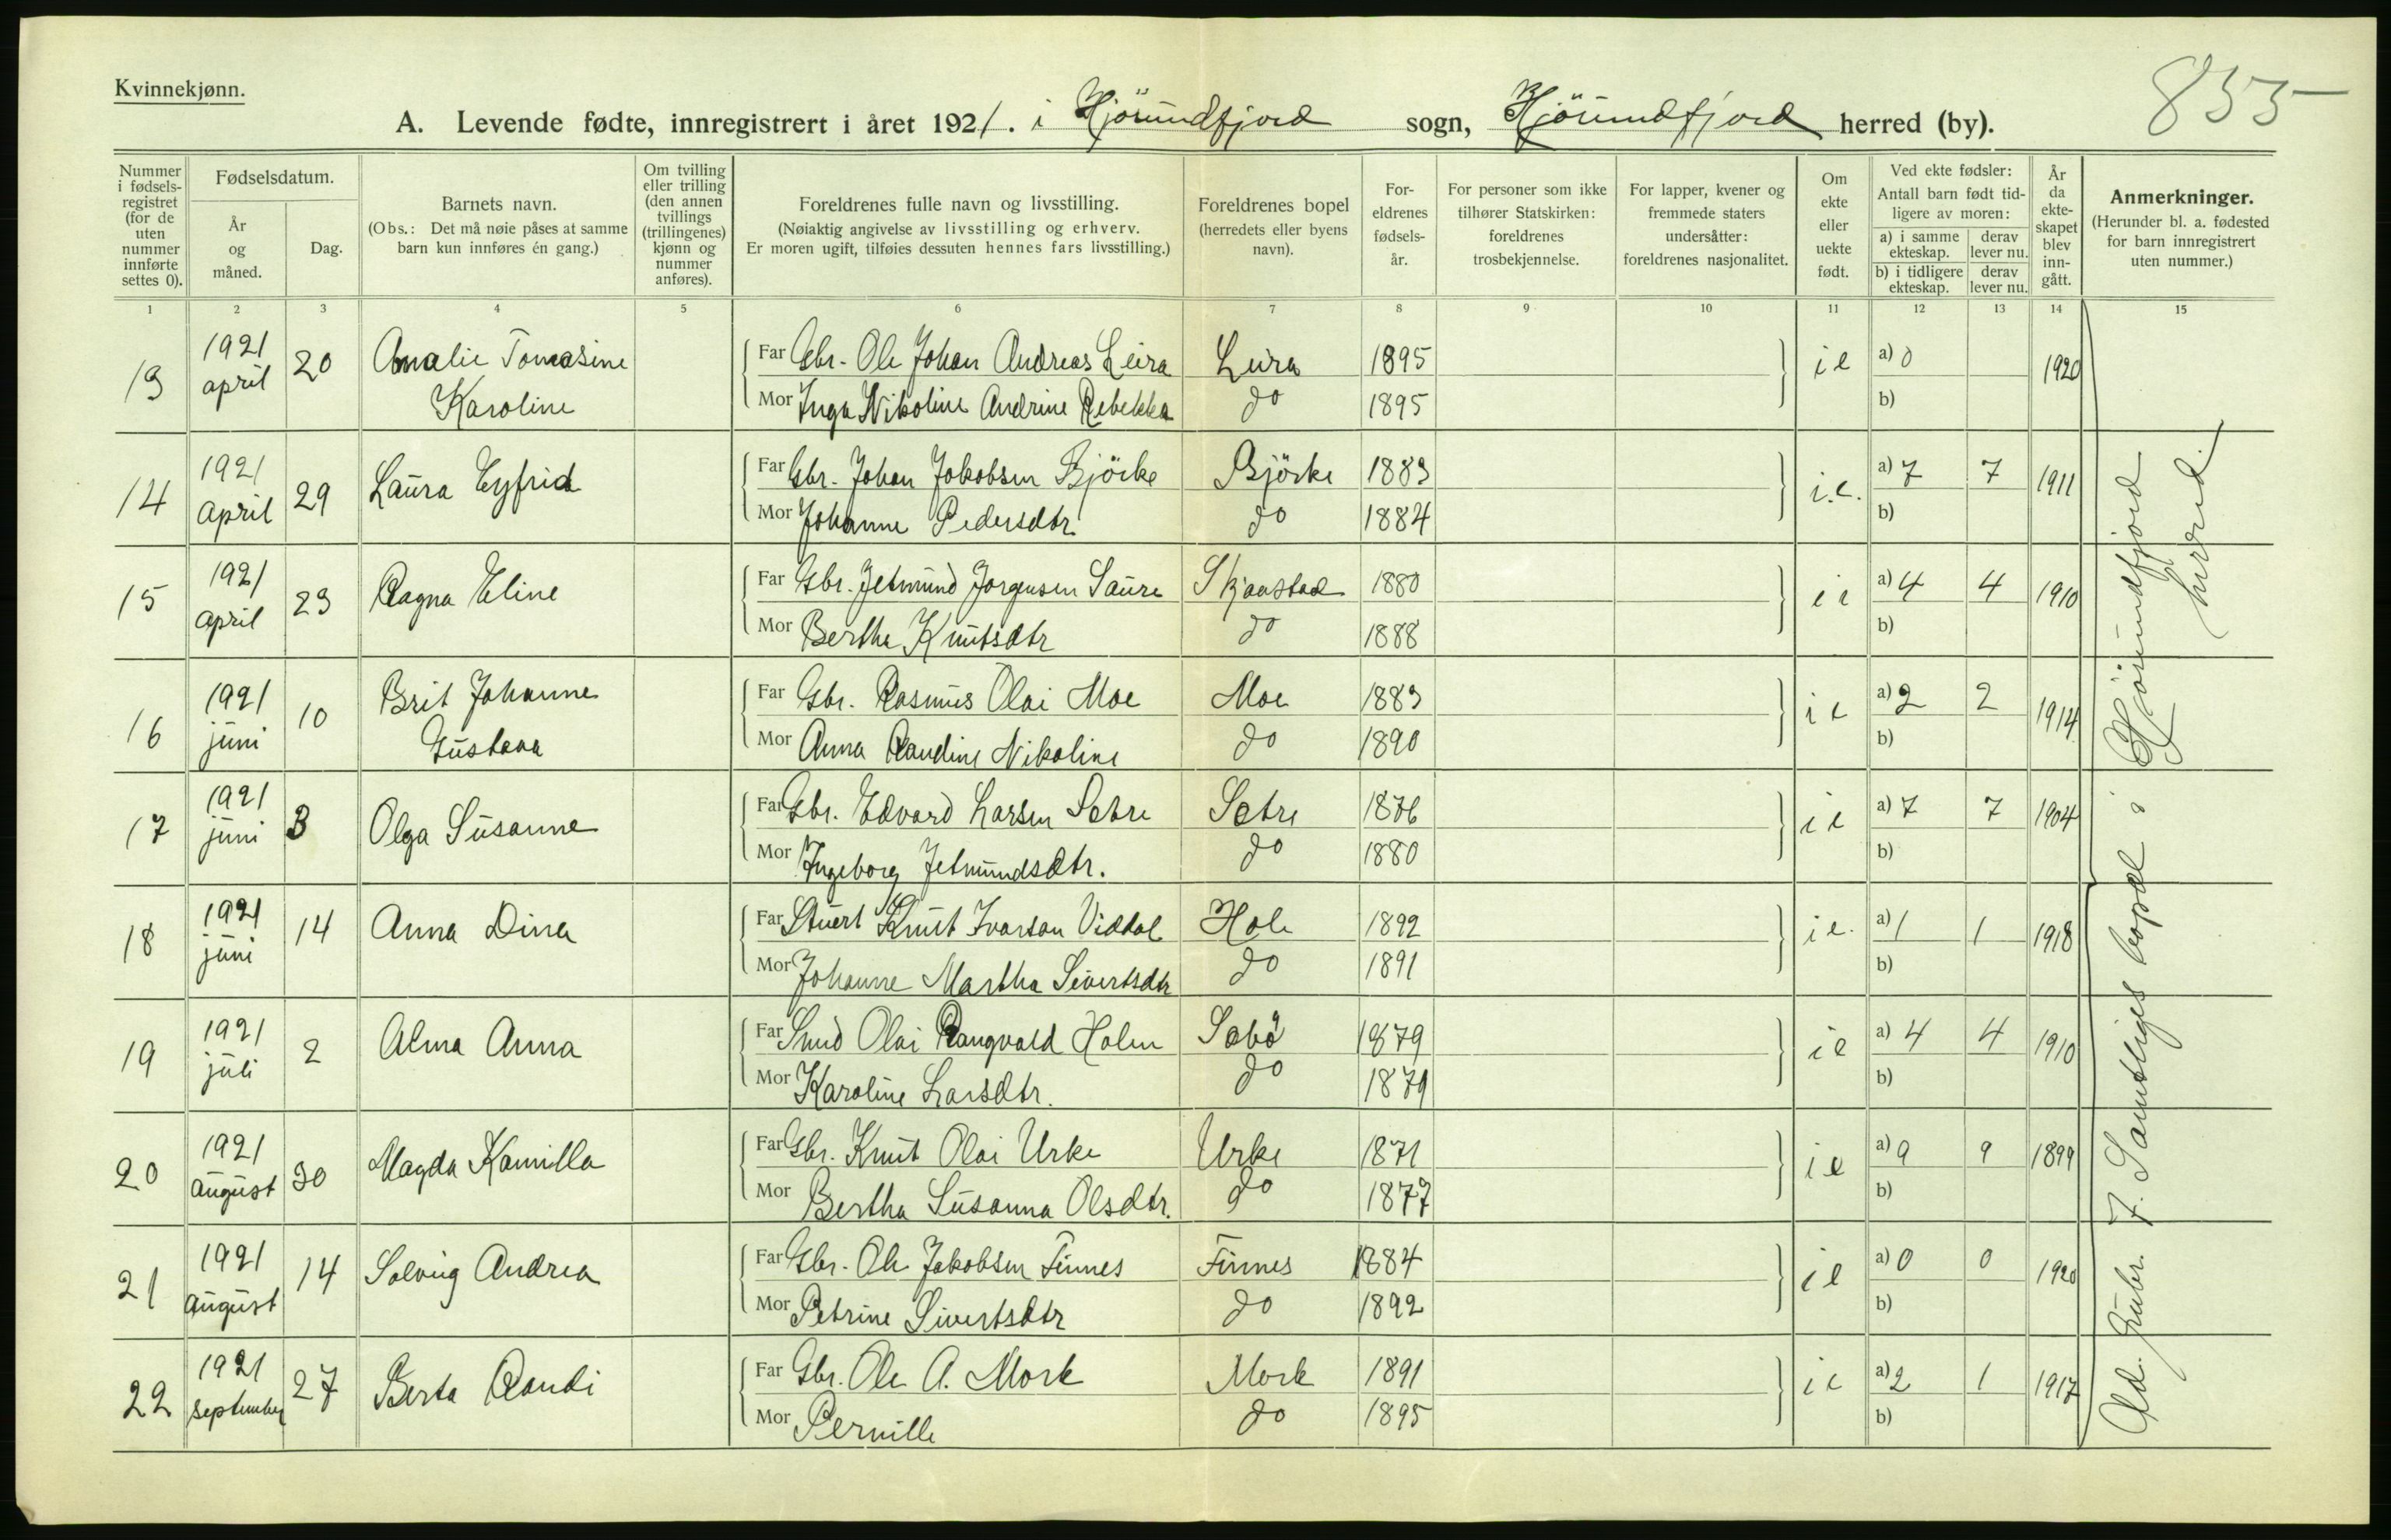 Kvinnekjønn.
855
A. Levende fødte, innregistrert i året 1921. i Hjörundfjord sogn, Hjörundfjord herred (by).
Nummer i fødselsregistret (for de uten nummer innførte settes 0).
Fødselsdatum.
År og måned.
Dag.
Barnets navn.
(Obs.: Det må nøie påses at samme barn kun innføres én gang.)
Om tvilling eller trilling (den annen tvillings (trillingenes) kjønn og nummer anføres).
Foreldrenes fulle navn og livsstilling.
(Nøiaktig angivelse av livsstilling og erhverv.
Er moren ugift, tilføies dessuten hennes fars livsstilling.)
Foreldrenes bopel (herredets eller byens navn).
Foreldrenes fødselsår.
For personer som ikke tilhører Statskirken: foreldrenes trosbekjennelse.
For lapper, kvener og fremmede staters undersåtter: foreldrenes nasjonalitet.
Om ekte eller uekte født.
Ved ekte fødsler:
Antall barn født tidligere av moren:
a) i samme ekteskap.
derav lever nu.
b) i tidligere ekteskap.
derav lever nu.
År da ekteskapet blev inngått.
Anmerkninger.
(Herunder bl. a. fødested for barn innregistrert uten nummer.)
1 2 3 4 5 6 7 8 9 10 11 12 13 14 15
13 1921 april 20 Amalie Tomasine Karoline Far Gbr. Ole Johan Andreas Leira Leira 1895 ie a) 0 1920
Mor Inga Nikoline Andrine Rebekka do 1895 b)
14 1921 April 29 Laura Eyfrid Far Gbr. Johan Jakobsen Björke Björke 1883 i.e. a) 7 7 1911
Mor Johanne Pedersdtr. do 1884 b)
15 1921 april 23 Ragna Eline Far Gbr. Jetmund Jorgensen Saure Skjaastad 1880 ie a) 4 4 1910
Mor Berthe Knutsdtr do 1888 b)
16 1921 juni 10 Brit Johanne Gustava Far Gbr. Rasmus Olai Moe Moe 1883 ie a) 2 2 1914
Mor Anna Raudine Nikoline do 1890 b)
17 1921 juni 3 Olga Susanne Far Gbr. Edvard Larsen Sætre Sætre 1876 ie a) 7 7 1904
Mor Ingeborg Jetmundsdtr. do 1880 b)
18 1921 juni 14 Anna Dina Far Stuert Knut Ivarson Viddal Hole 1892 ie. a) 1 1 1918
Mor Johanne Martha Sivertsdtr do 1891 b)
19 1921 juli 2 Alma Anna Far Smed Olai Rangvald Holm Sæbø 1879 ie a) 4 4 1910
Mor Karoline Larsdtr. do 1879 b)
20 1921 August 30 Magda Kamilla Far Gbr. Knut Olai Urke Urke 1871 ie a) 9 9 1899
Mor Bertha Susanna Olsdtr. do 1877 b)
21 1921 August 14 Solveig Andrea Far Gbr. Ole Jakobsen Finnes Finnes 1884 ie a) 0 0 1920
Mor Petrine Sivertsdtr do 1892 b)
22 1921 september 27 Berta Randi Far Gbr. Ole A. Mork Mork 1891 ie a) 2 1 1917
Mor Pernille do 1895 b)
Ad. rubr. 7. Samtliges bopæl i Hjörundfjord
herred.